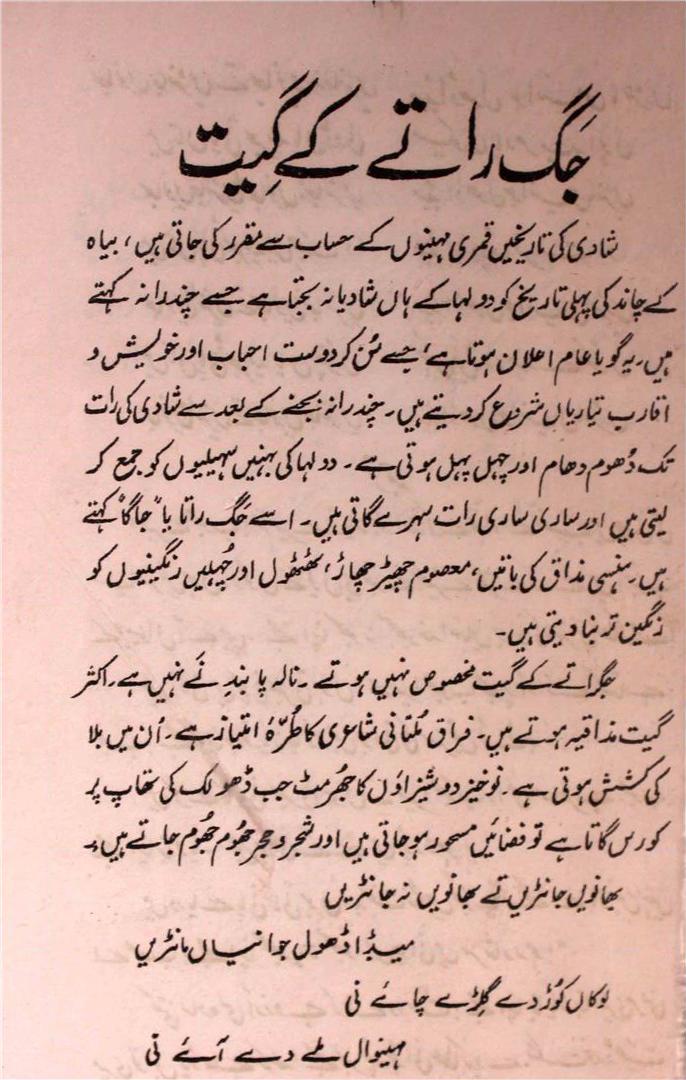 جَگ راتے کے گیت
شادی کی تاریخیں قمری مہینوں کے حساب سے مقرر کی جاتی ہیں، بیاہ
کے چاند کی پہلی تاریخ کو دولہا کے ہاں شادیانہ بجتا ہے جسے چندرانہ کہتے
ہیں۔ یہ گویا عام اعلان ہوتا ہے، جسے سُن کر دوست احباب اور خویش و
اقارب تیاریاں شروع کر دیتے ہیں۔ چندرانہ بجنے کے بعد سے شادی کی رات
تک دُھوم دھام اور چہل پہل ہوتی ہے۔ دولہا کی بہنیں سہیلیوں کو جمع کر
لیتی ہیں اور ساری ساری رات سہرے گاتی ہیں۔ اسے جَگ راتا یا "جاگا" کہتے
ہیں۔ ہنسی مذاق کی باتیں، معصوم چھیڑ چھاڑ، ٹھٹھول اور چُہلیں رنگینیوں کو
رنگین تر بنا دیتی ہیں۔
جگراتے کے گیت مخصوص نہیں ہوتے۔ نالہ پابندِ نَے نہیں ہے۔ اکثر
گیت مذاقیہ ہوتے ہیں۔ فراق مُلتانی شاعری کا طُرّۂ امتیاز ہے۔ اُن میں بلا
کی کشش ہوتی ہے۔ نوخیز دوشیزاؤں کا جُھرمٹ جب ڈھولک کی تھاپ پر
کورس گاتا ہے تو فضائیں مسحور ہو جاتی ہیں اور شجر و حجر جھُوم جھُوم جاتے ہیں۔
بھانویں جانڑیں تے بھانویں نہ جانڑیں
میڈا ڈھول جوانیاں مانڑیں
لوکاں کُوڑ دے گِلڑے چائے نی
مہینوال ملے دے آئے نی